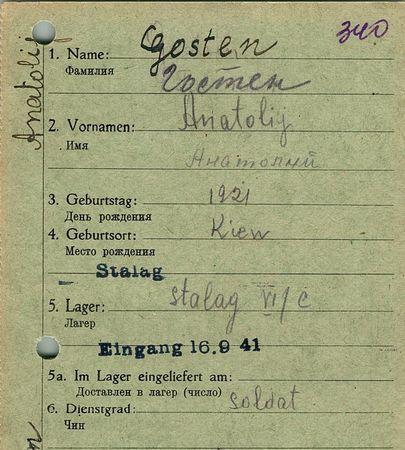 Anatolij
340
1. Name: Gosten
Фамилия Гостен
2. Vornamen: Anatolij
Имя Анатолий
3. Geburtstag: 1921
День рождения
4. Geburtsort: Kiew
Место рождения
Stalag
5. Lager: Stalag VI/C
Лагер
Eingang 16.9 41
5a. Im Lager eingeliefert am:
Доставлен в лагер (число)
6. Dienstgrad: soldat
Чин